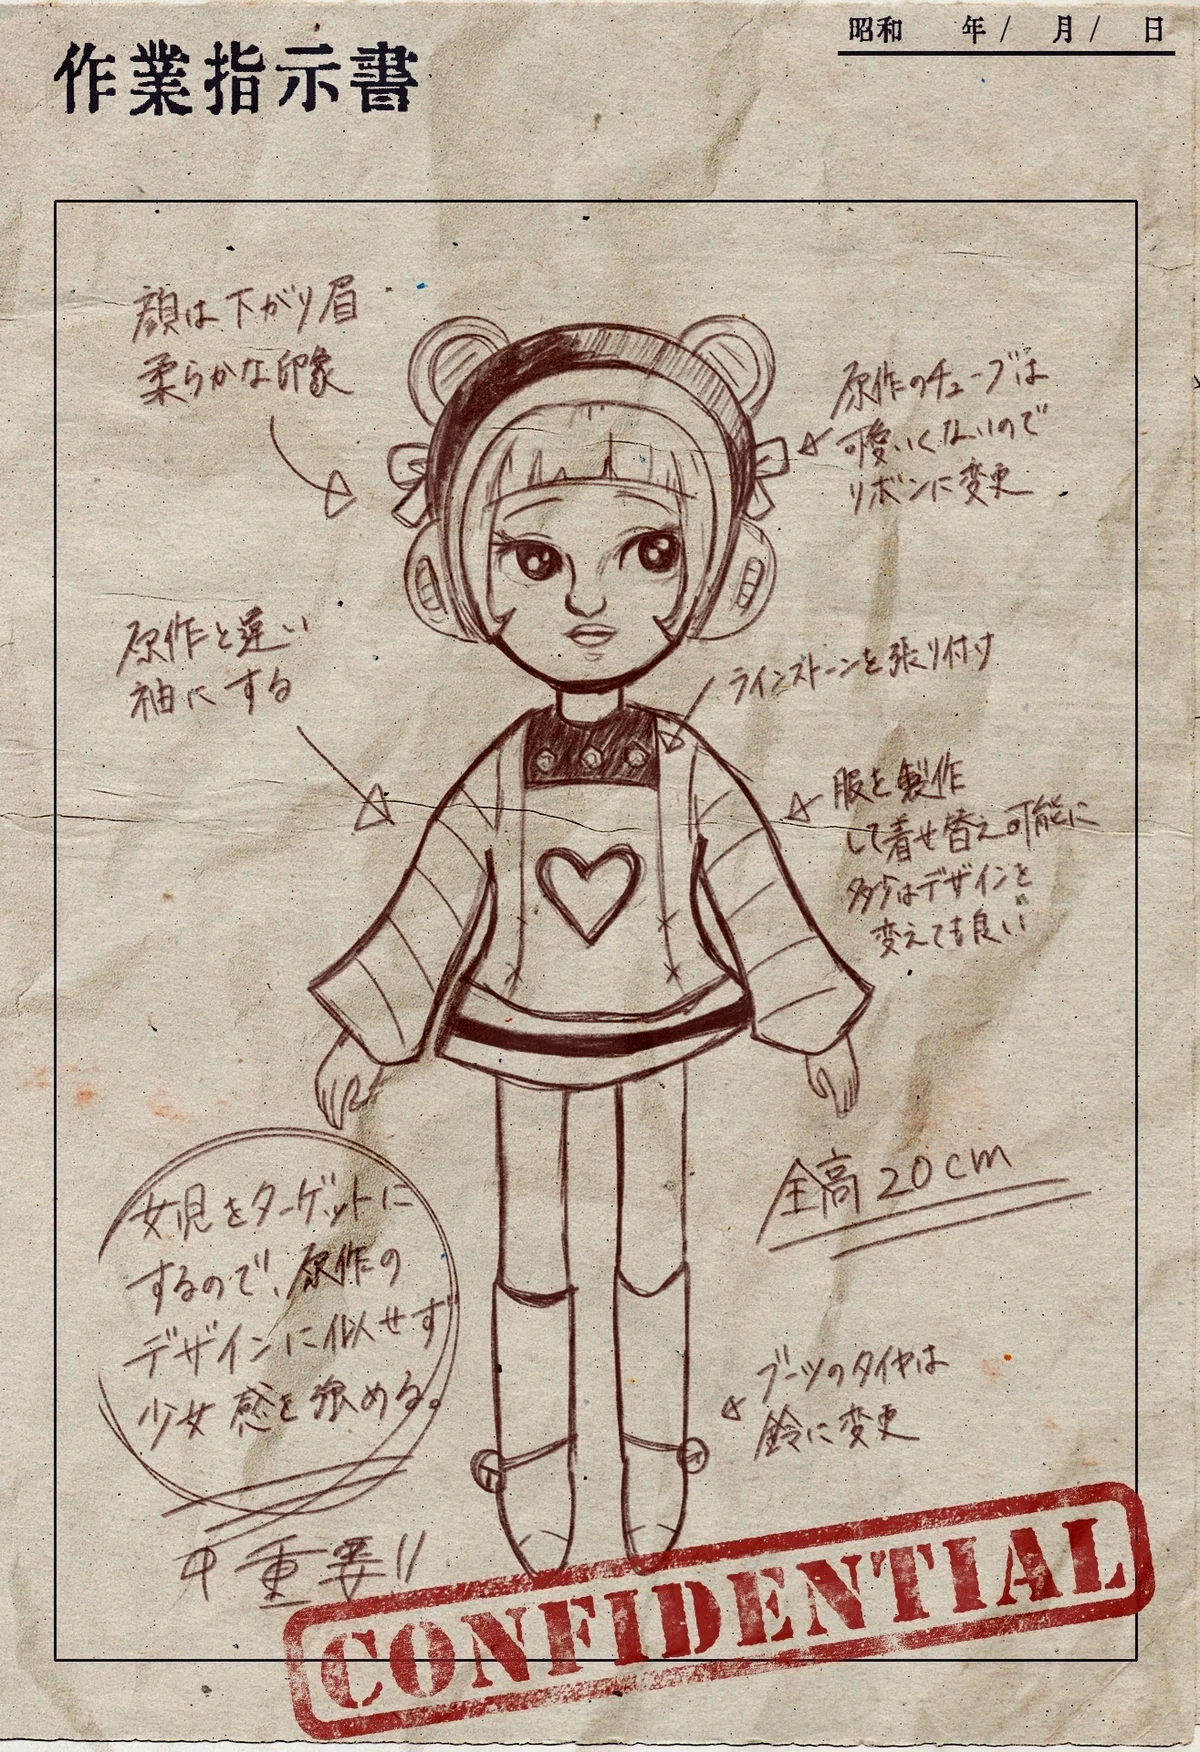 昭和　年/　月/　日
作業指示書
顔は下がり眉
柔らかな印象
原作のチューブは
可愛いくないので
リボンに変更
原作と違い
袖にする
ラインストーンを張り付け
服を製作
して着せ替え可能に
多少はデザインを
変えても良い
全高20cm
女児をターゲットに
するので、原作の
デザインに似せず
少女感を強める。
重要!!
ブーツのタイヤは
鈴に変更
CONFIDENTIAL